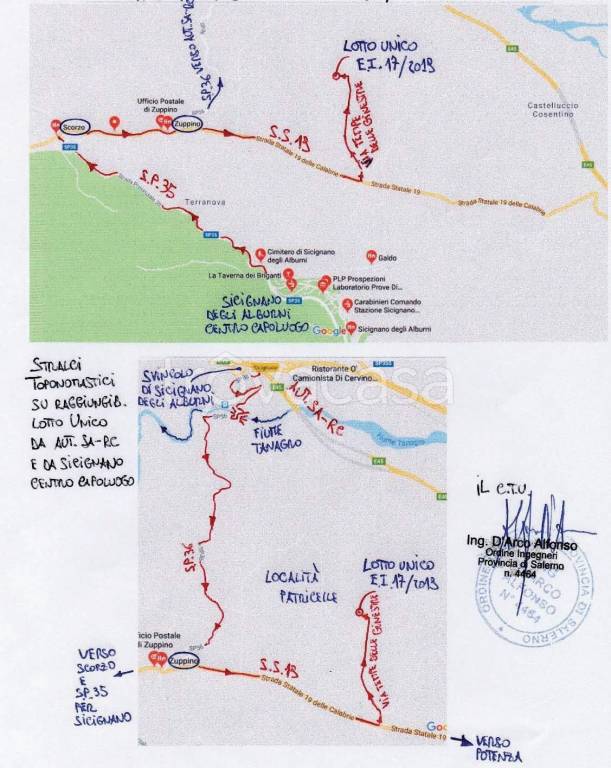 S.P.36 VERSO AUT. SA-RC
LOTTO UNICO
E.I. 17/2019
E45
Castelluccio
Cosentino
Ufficio Postale
di Zuppino
SP36
Scorzo
Zuppino
S.S.19
VIA TEMPE
DELLE GINESTRE
SP35
Strada Statale 19 delle Calabrie
Strada Statale 19
Strada Statale 19 delle Calabrie
S.P.35
Terranova
SP35
Cimitero di Sicignano
degli Alburni
Galdo
La Taverna dei Briganti
PLP Prospezioni
Laboratorio Prove Di...
SP35
SICIGNANO
DEGLI ALBURNI
CENTRO CAPOLUOGO
Carabinieri Comando
Stazione Sicignano...
Google
Sicignano degli Alburni
STRALCI
TOPONOMASTICI
SU RAGGIUNGIB.
LOTTO UNICO
DA AUT. SA-RC
E DA SICIGNANO
CENTRO CAPOLUOGO
SVINCOLO
DI SICIGNANO
DEGLI ALBURNI
Ristorante O'
Camionista Di Cervino...
E45
AUT. SA-RC
SP36
FIUME
TANAGRO
Fiume Tanagro
E45
E45
S.P.36
LOCALITÀ
PATRICELLE
LOTTO UNICO
E.I. 17/2019
VIA TEMPE DELLE GINESTRE
SP36
ficio Postale
di Zuppino
Zuppino
S.S.19
Strada Statale 19 delle Calabrie
Strada Statale 19
Goo
VERSO
SCORZO
E
S.P.35
PER
SICIGNANO
VERSO
POTENZA
IL C.T.U.
Ing. D'Arco Alfonso
Ordine Ingegneri
Provincia di Salerno
n. 4464